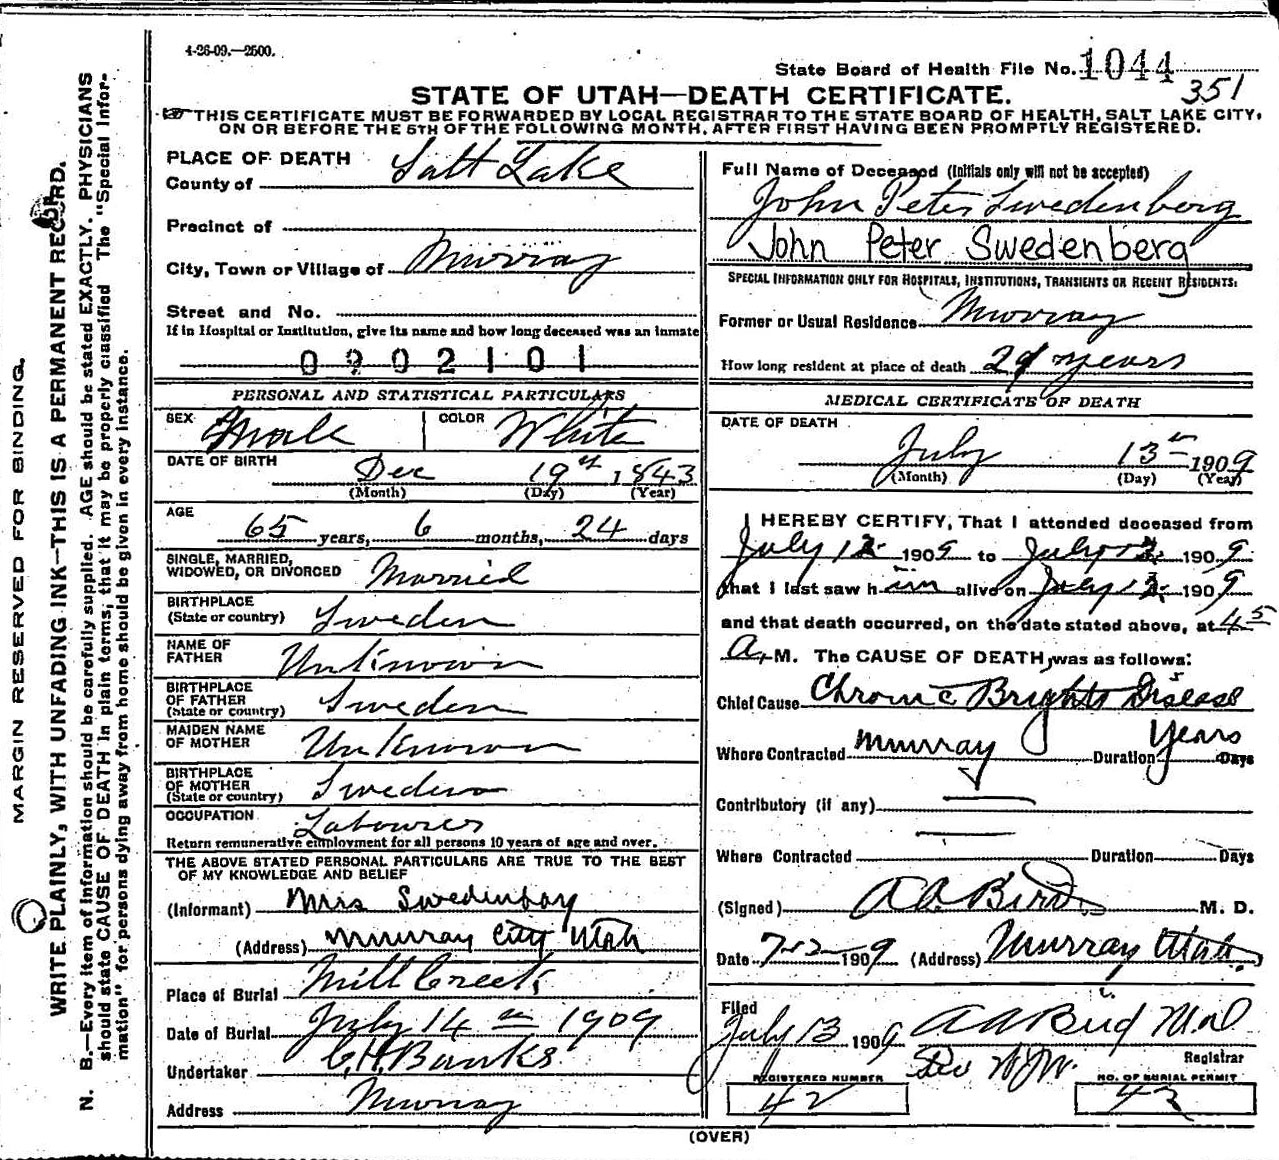 4-26-09.—2500.
State Board of Health File No. 1044
351
STATE OF UTAH—DEATH CERTIFICATE.
THIS CERTIFICATE MUST BE FORWARDED BY LOCAL REGISTRAR TO THE STATE BOARD OF HEALTH, SALT LAKE CITY,
ON OR BEFORE THE 5TH OF THE FOLLOWING MONTH, AFTER FIRST HAVING BEEN PROMPTLY REGISTERED.
MARGIN RESERVED FOR BINDING.
WRITE PLAINLY, WITH UNFADING INK—THIS IS A PERMANENT RECORD.
N. B.—Every item of information should be carefully supplied. AGE should be stated EXACTLY. PHYSICIANS
should state CAUSE OF DEATH in plain terms, that it may be properly classified The "Special Infor-
mation" for persons dying away from home should be given in every instance.
PLACE OF DEATH
County of Salt Lake
Precinct of
City, Town or Village of Murray
Street and No.
If in Hospital or Institution, give its name and how long deceased was an inmate
0902101
PERSONAL AND STATISTICAL PARTICULARS
SEX Male COLOR White
DATE OF BIRTH Dec 19th 1843
(Month) (Day) (Year)
AGE
65 years, 6 months, 24 days
SINGLE, MARRIED,
WIDOWED, OR DIVORCED Married
BIRTHPLACE
(State or country) Sweden
NAME OF
FATHER Unknown
BIRTHPLACE
OF FATHER
(State or country) Sweden
MAIDEN NAME
OF MOTHER Unknown
BIRTHPLACE
OF MOTHER
(State or country) Sweden
OCCUPATION Labourer
Return remunerative employment for all persons 10 years of age and over.
THE ABOVE STATED PERSONAL PARTICULARS ARE TRUE TO THE BEST
OF MY KNOWLEDGE AND BELIEF
(Informant) Mrs Swedenborg
(Address) Murray City Utah
Place of Burial Mill Creek
Date of Burial July 14th 1909
Undertaker
Address Murray
Full Name of Deceased (Initials only will not be accepted)
John Peter Swedenberg
John Peter Swedenberg
SPECIAL INFORMATION ONLY FOR HOSPITALS, INSTITUTIONS, TRANSIENTS OR RECENT RESIDENTS:
Former or Usual Residence Murray
How long resident at place of death 29 years
MEDICAL CERTIFICATE OF DEATH
DATE OF DEATH
July 13th 1909
(Month) (Day) (Year)
I HEREBY CERTIFY, That I attended deceased from
July 12 1909 to July 12 1909
that I last saw him alive on July 12 1909
and that death occurred, on the date stated above, at 4 5
A. M. The CAUSE OF DEATH was as follows:
Chief Cause Chronic Brights Disease
Where Contracted Murray Duration Years Days
Contributory (if any)
Where Contracted Duration Days
(Signed) A A Bird M. D.
Date 7-2-1909 (Address) Murray Utah
Filed
July 13 1909 A A Bird M D
Registrar
REGISTERED NUMBER
42
NO. OF BURIAL PERMIT
42
(OVER)